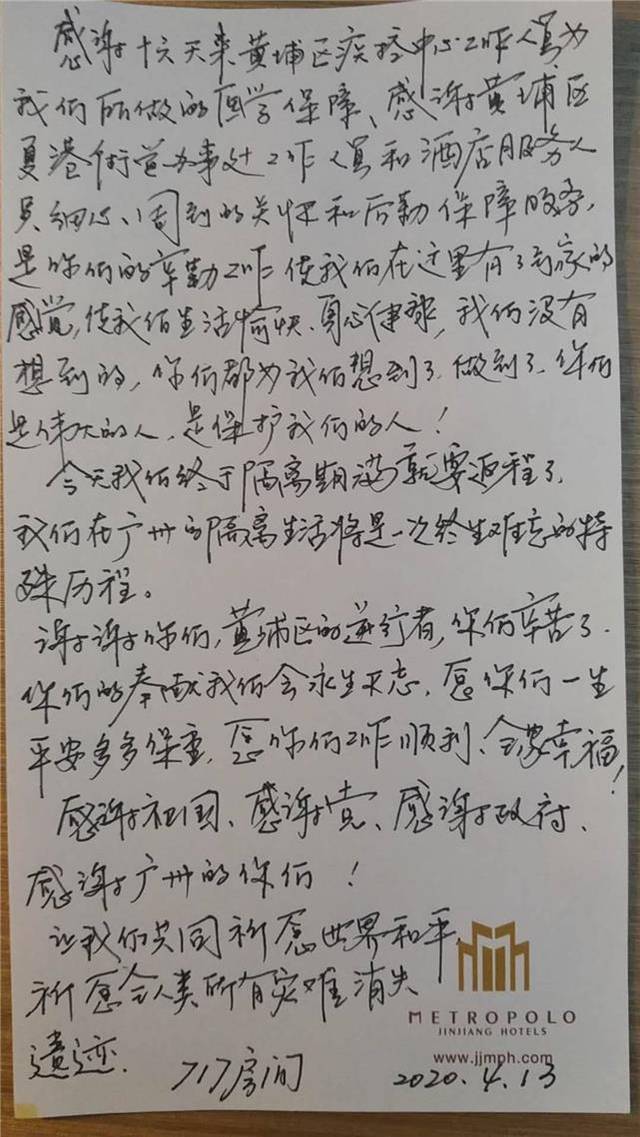 感谢十六天来黄埔区疾控中心工作人员为
我们所做的医学保障、感谢黄埔区
夏港街道办事处工作人员和酒店服务人
员细心、周到的关怀和后勤保障服务,
是你们的辛勤工作使我们在这里有了到家的
感觉,使我们生活愉快、身心健康,我们没有
想到的,你们都为我们想到了.做到了.你们
是伟大的人,是保护我们的人!
今天我们终于隔离期满就要返程了.
我们在广州的隔离生活将是一次终生难忘的特
殊历程。
谢谢你们,黄埔区的逆行者,你们辛苦了.
你们的奉献我们会永生不忘.愿你们一生
平安多多保重.愿你们工作顺利、全家幸福!
感谢祖国、感谢党、感谢政府、
感谢广州的你们!
让我们共同祈愿世界和平,
祈愿全人类所有灾难消失
遗迹.
717房间
2020.4.13
METROPOLO
JINJIANG HOTELS
www.jjmph.com